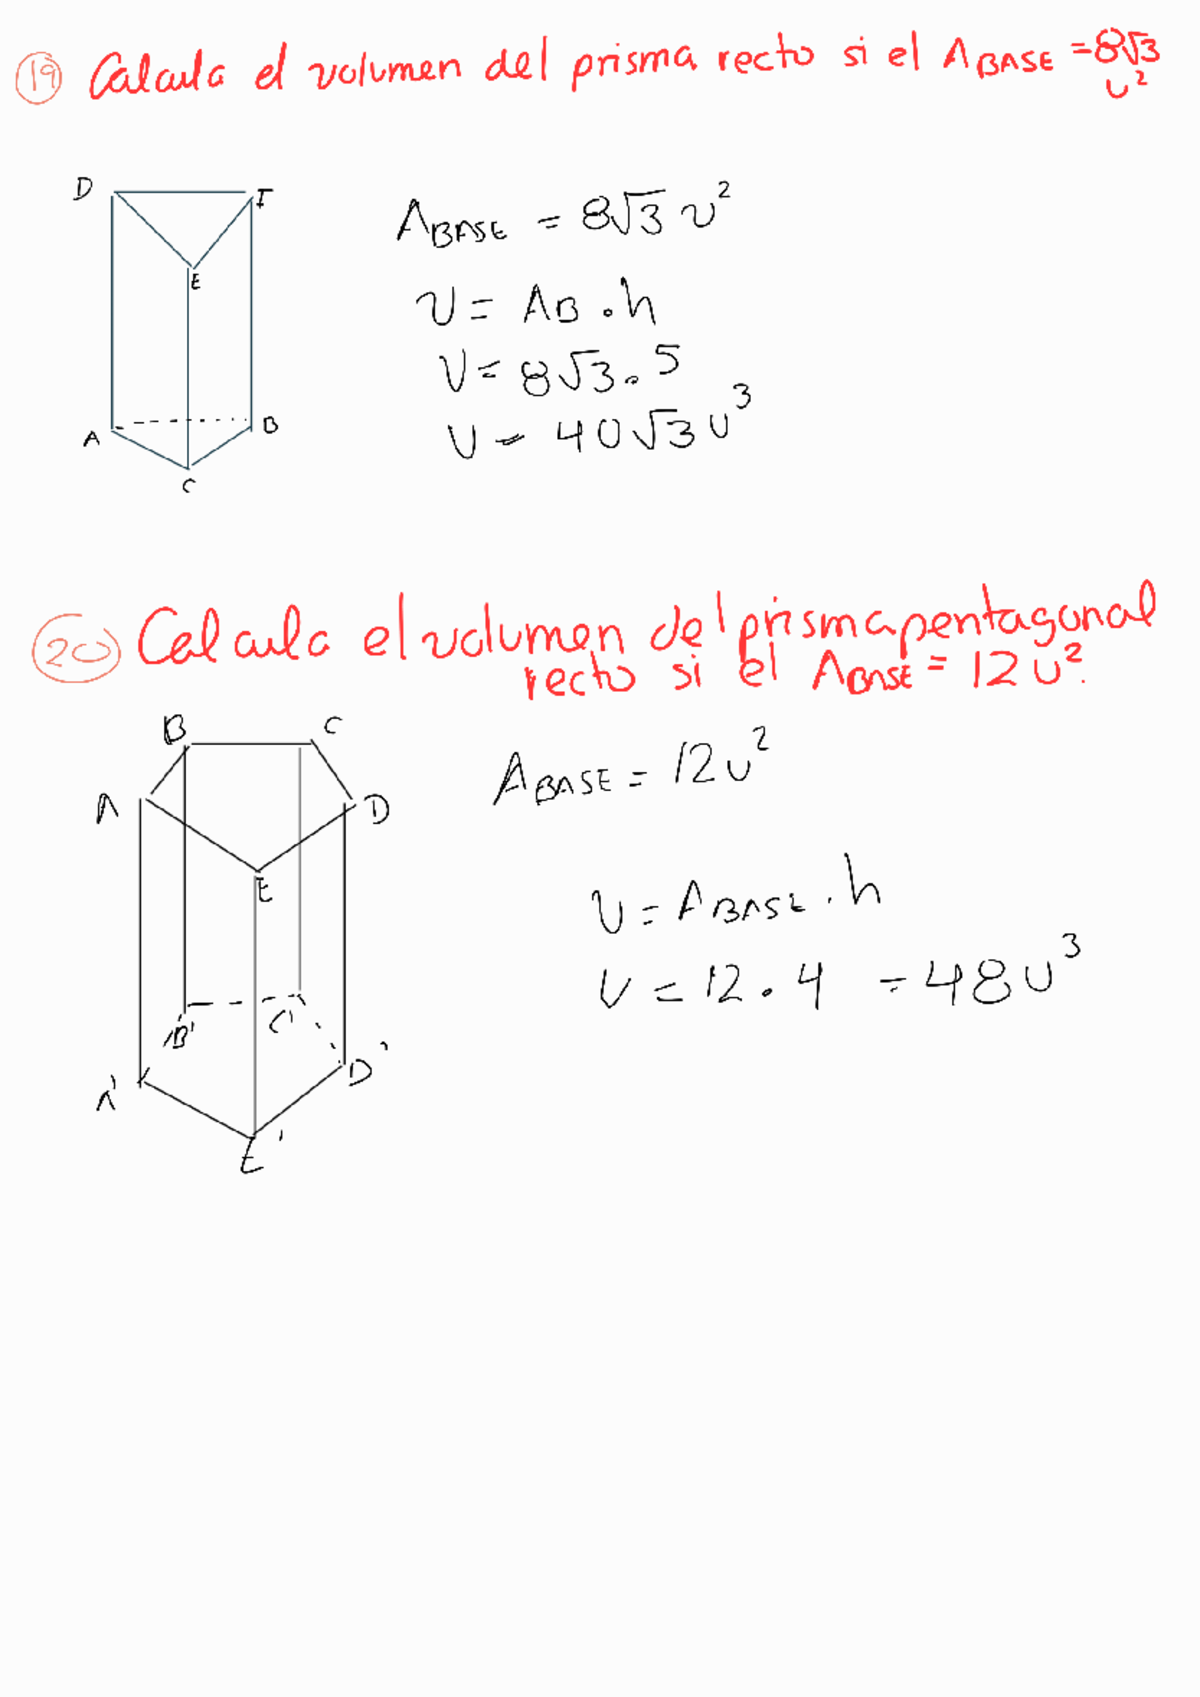 19 Calcula el volumen del prisma recto si el ABASE = 8√3
u²
D F
E
A B
C
ABASE = 8√3 u²
V = AB . h
V = 8√3 . 5
V = 40√3 u³
20 Calcula el volumen del prisma pentagonal
recto si el ABASE = 12 u².
B C
A D
E
B' C'
A' D'
E'
ABASE = 12u²
V = ABASE . h
V = 12 . 4 = 48u³